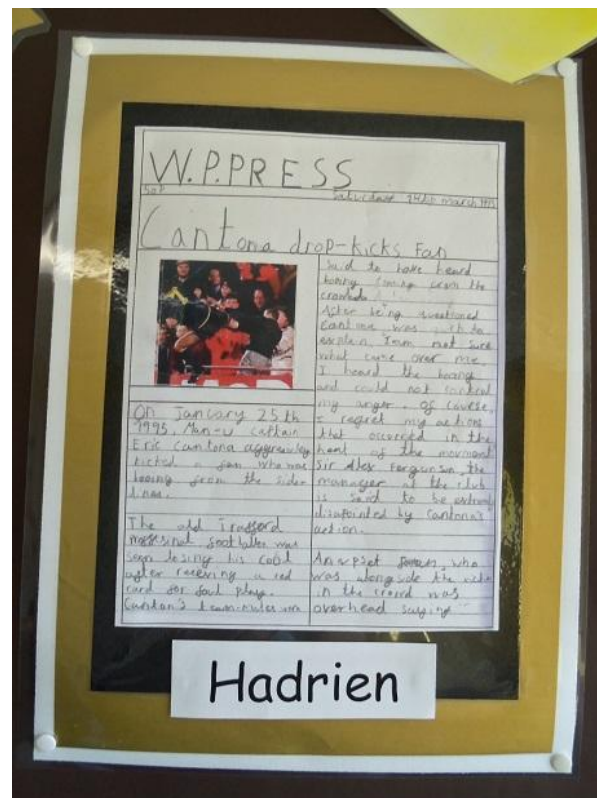 W.P.PRESS
50P
Saturday 14th march 1995
Cantona drop-kicks Fan
On January 25th
1995, Man-u captain
Eric Cantona aggressivley
kicked a fan who was
booing from the siden
lines.
The old Trafford
footballer was
seen losing his cool
after receving a red
card for foul play.
Canton's team-mates are
Said to have heard
booing coming from the
crowds.
After being questioned
cantona was to
explain, Iam not sure
what came over me.
I heard the booing
and could not control
my anger. Of course,
I regret my actions
that occured in the
heat of the moment
Sir Alex Fergunson, the
manager at the club
is said to be
disapointed by Cantona's
action.
An upset who
was alongside the
in the crowd was
overhead saying
Hadrien